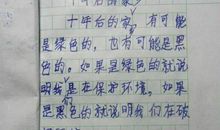 十年后的家
十年后的家,有可能
是绿色的,也有可能是黑
色的。如果是绿色的就说
明我们是在保护环境,如果
是黑色的就说明我们在破